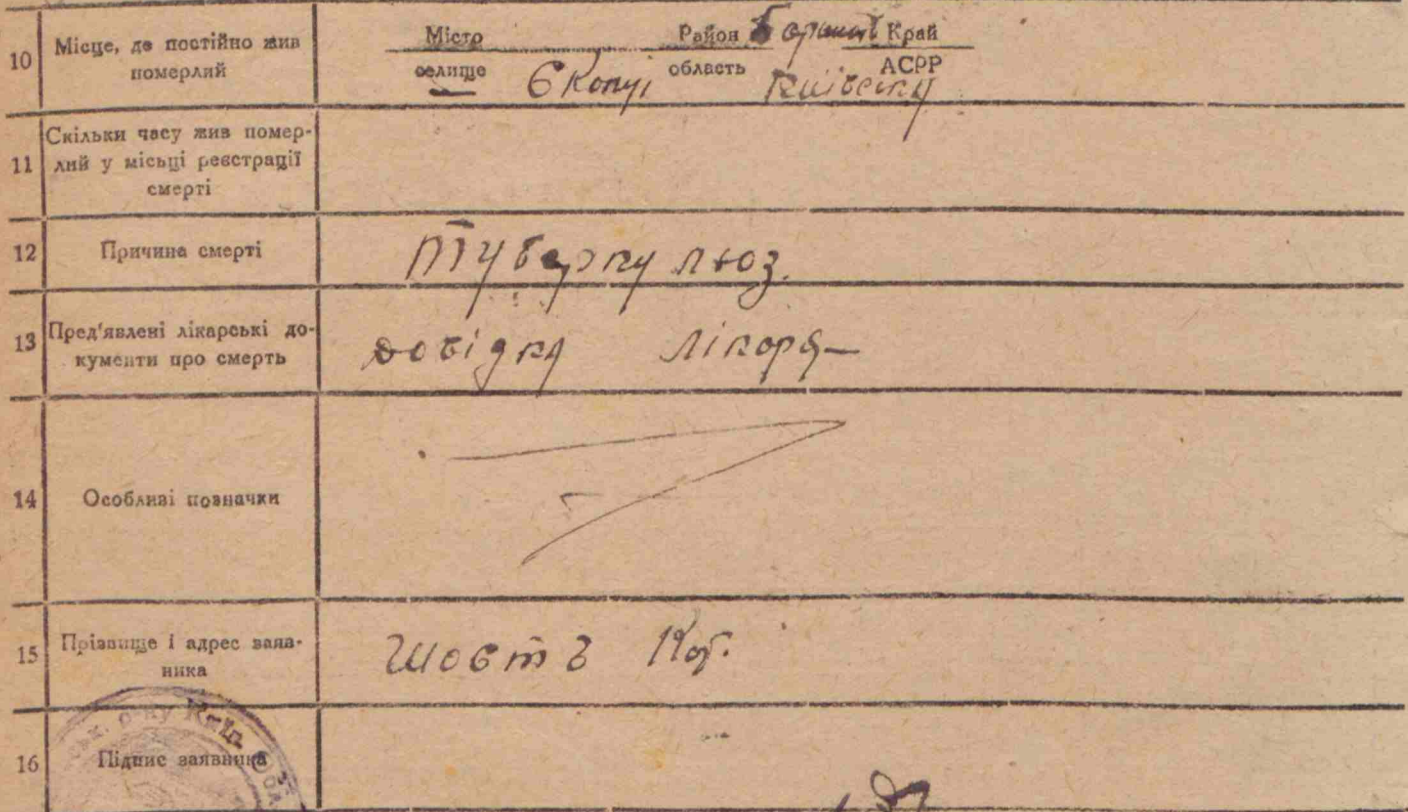 10 Місце, де постійно жив
померлий
Місто Район Край
селище область АСРР
11 Скільки часу жив помер-
лий у місьці реєстрації
смерті
12 Причина смерті Туберкулюз.
13 Пред'явлені лікарські до-
кументи про смерть
довідка лікоря
14 Особливі позначки
15 Прізвище і адрес заяв-
ника
16 Підпис заявника